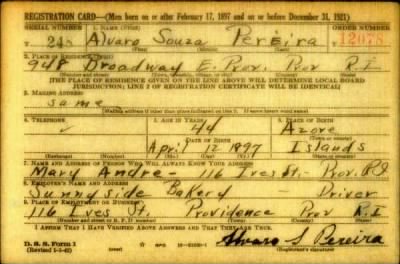 REGISTRATION CARD—(Men born on or after February 17, 1897 and on or before December 31, 1921)
SERIAL NUMBER 1. NAME (Print) ORDER NUMBER
T 248 Alvaro Souza Pereira 12078
(First) (Middle) (Last)
2. PLACE OF RESIDENCE (Print)
948 Broadway E. Prov. Prov R.I
(Number and street) (Town, township, village, or city) (County) (State)
[THE PLACE OF RESIDENCE GIVEN ON THE LINE ABOVE WILL DETERMINE LOCAL BOARD
JURISDICTION; LINE 2 OF REGISTRATION CERTIFICATE WILL BE IDENTICAL]
3. MAILING ADDRESS
Same
[Mailing address if other than place indicated on line 2. If same insert word same]
4. TELEPHONE 5. AGE IN YEARS 6. PLACE OF BIRTH
44 Azore
DATE OF BIRTH (Town or county)
April 12 1897 Islands
(Exchange) (Number) (Mo.) (Day) (Yr.) (State or country)
7. NAME AND ADDRESS OF PERSON WHO WILL ALWAYS KNOW YOUR ADDRESS
Mary Andre - 116 Ives St. - Prov. RI
8. EMPLOYER'S NAME AND ADDRESS
Sunnyside Bakery - Driver
9. PLACE OF EMPLOYMENT OR BUSINESS
116 Ives St. Providence Prov R.I
(Number and street or R. F. D. number) (Town) (County) (State)
I AFFIRM THAT I HAVE VERIFIED ABOVE ANSWERS AND THAT THEY ARE TRUE.
D. S. S. Form 1
(Revised 1-1-42) Alvaro S. Pereira
(Registrant's signature)